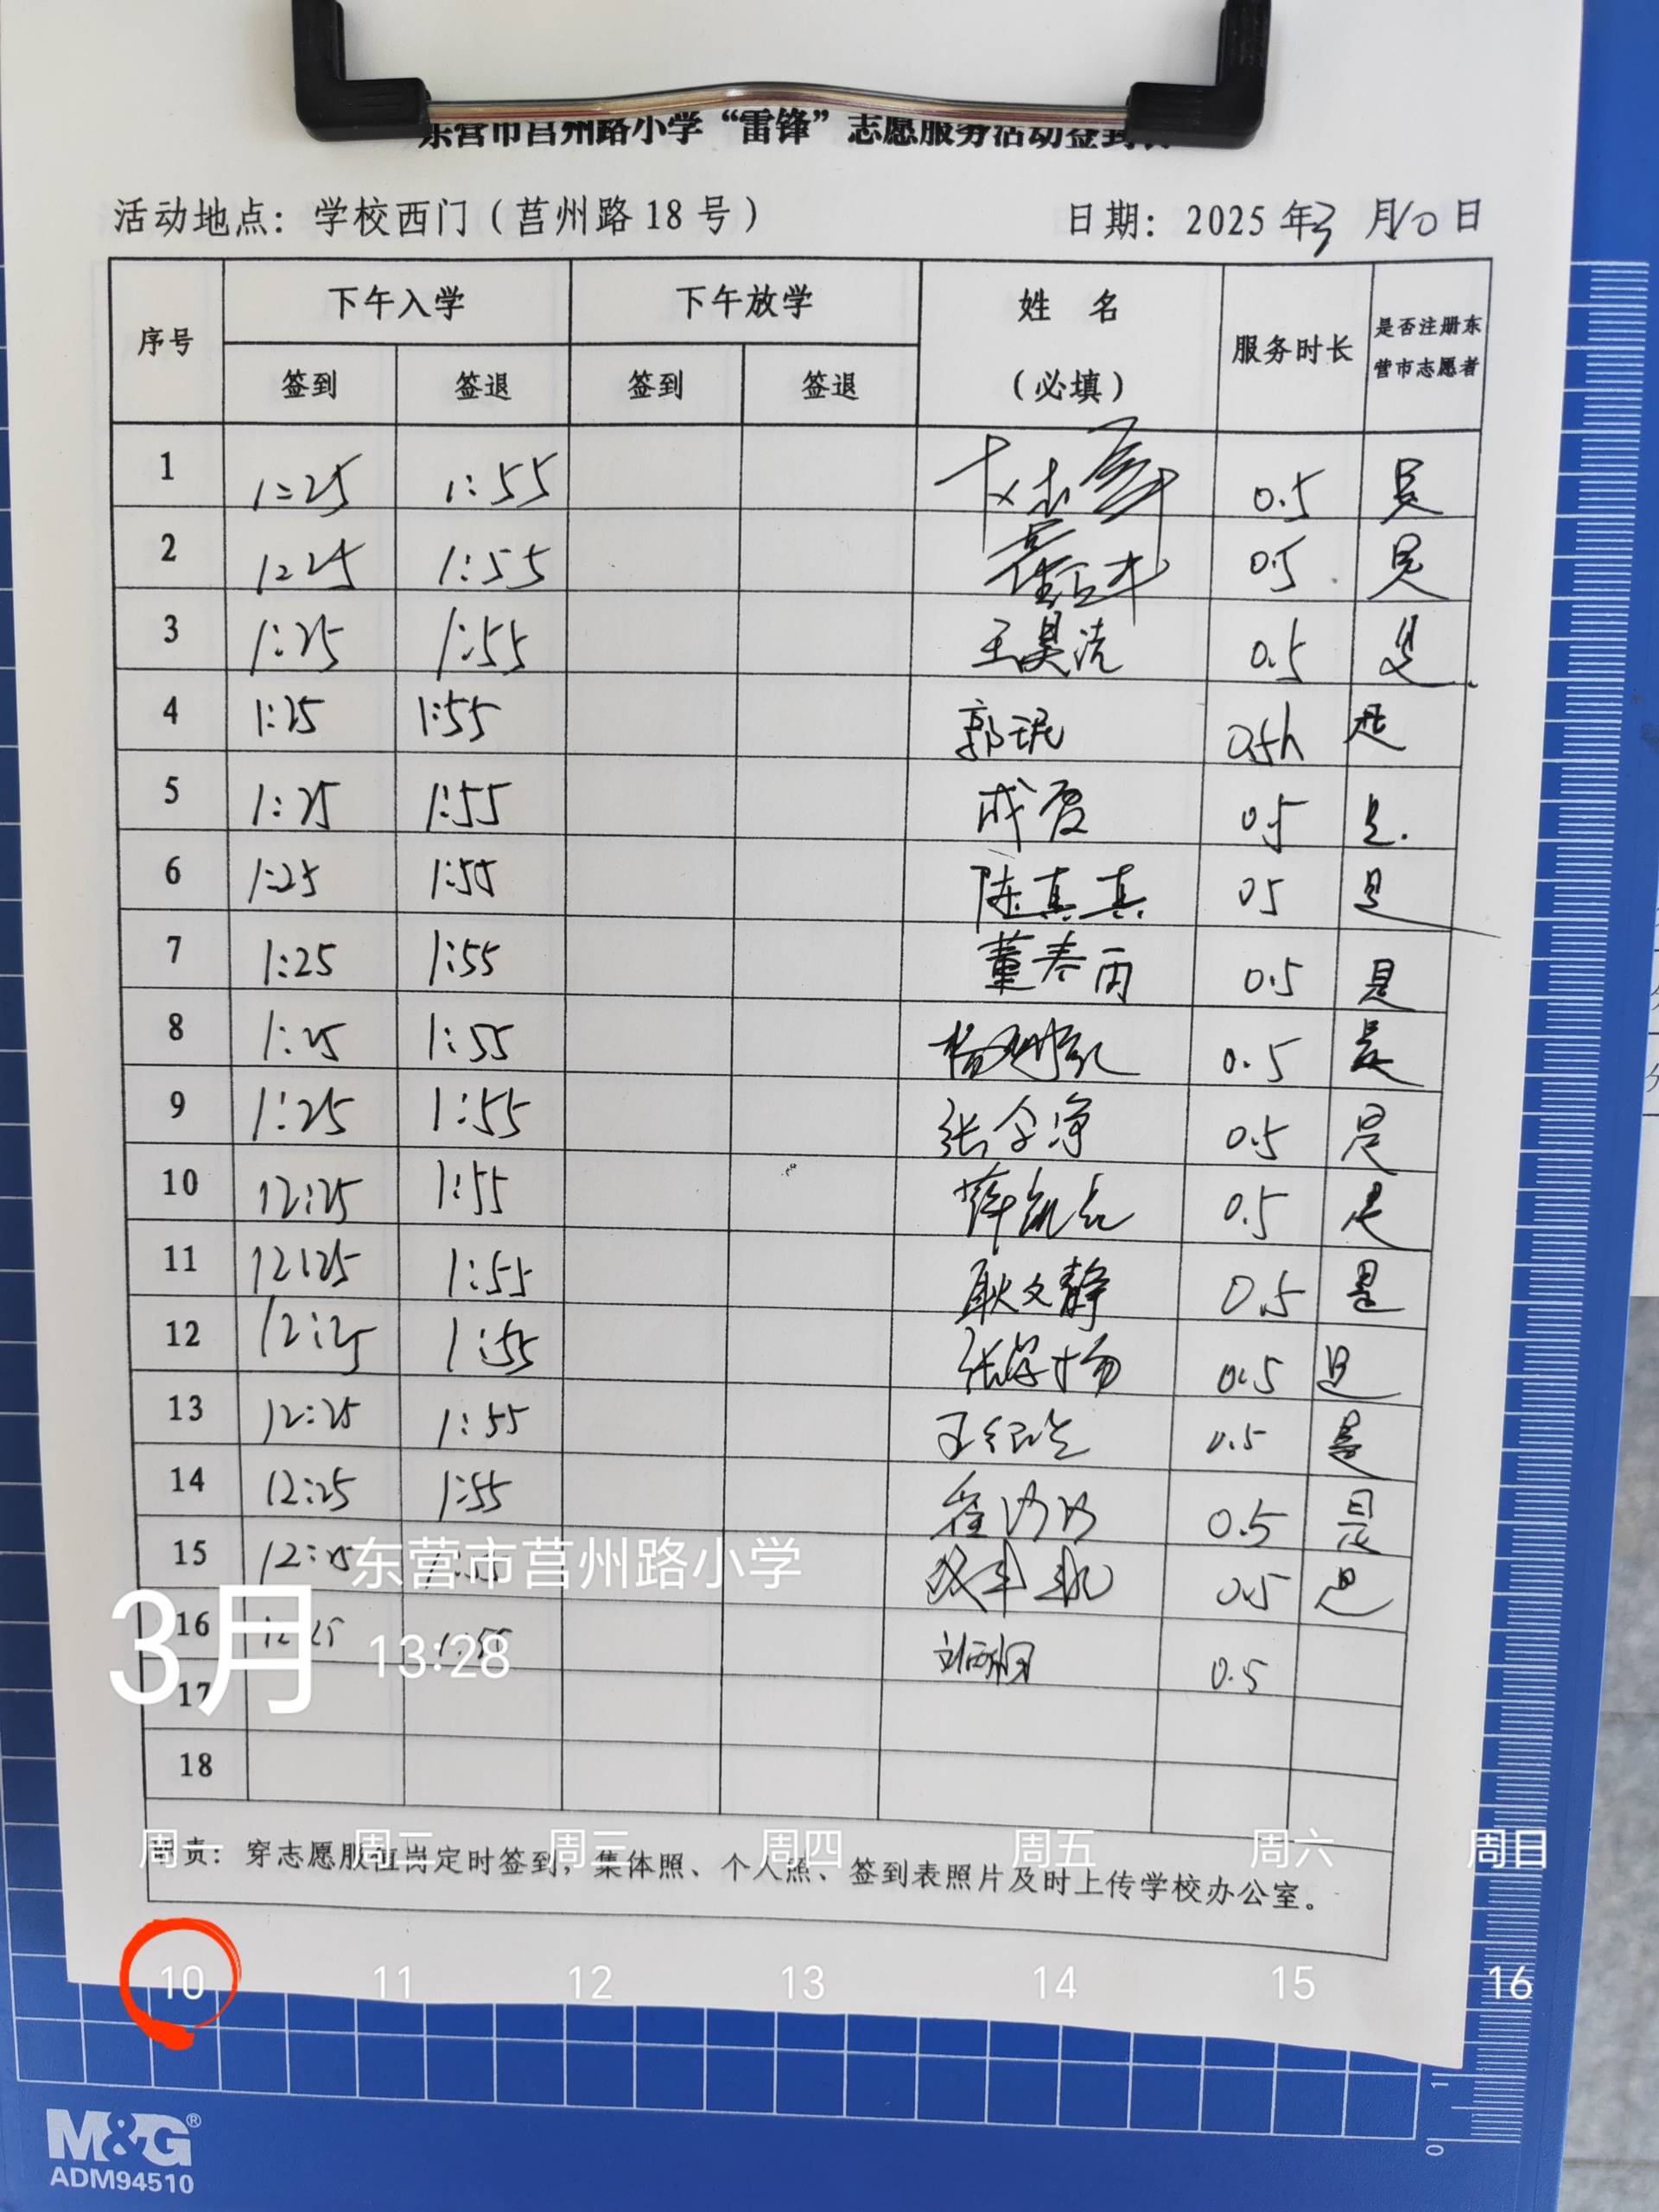 东营市莒州路小学“雷锋”志愿服务活动签到
活动地点：学校西门（莒州路18号） 日期：2025年3月10日
序号 下午入学 下午放学 姓 名 服务时长 是否注册东
签到 签退 签到 签退 （必填） 营市志愿者
1 1:25 1:55 0.5 是
2 1:25 1:55 0.5 是
3 1:25 1:55 王昊 0.5 是
4 1:25 1:55 郭珉 0.5h 是
5 1:25 1:55 成霞 0.5 是.
6 1:25 1:55 陈真真 05 是
7 1:25 1:55 董春雨 0.5 是
8 1:25 1:55 杨 0.5 是
9 1:25 1:55 张令净 0.5 是
10 12:25 1:55 薛凯 0.5 是
11 12:25 1:55 耿文静 0.5 是
12 12:25 1:55 张学杨 0.5 是
13 12:25 1:55 王 0.5 是
14 12:25 1:55 0.5 是
15 12:25 1:55 0.5 是
东营市莒州路小学
3月 13:28
16 12:25 1:55 刘 0.5
17
18
职责：穿志愿服值岗定时签到，集体照、个人照、签到表照片及时上传学校办公室。
周一 周二 周三 周四 周五 周六 周日
10 11 12 13 14 15 16
M&G®
ADM94510
1
0